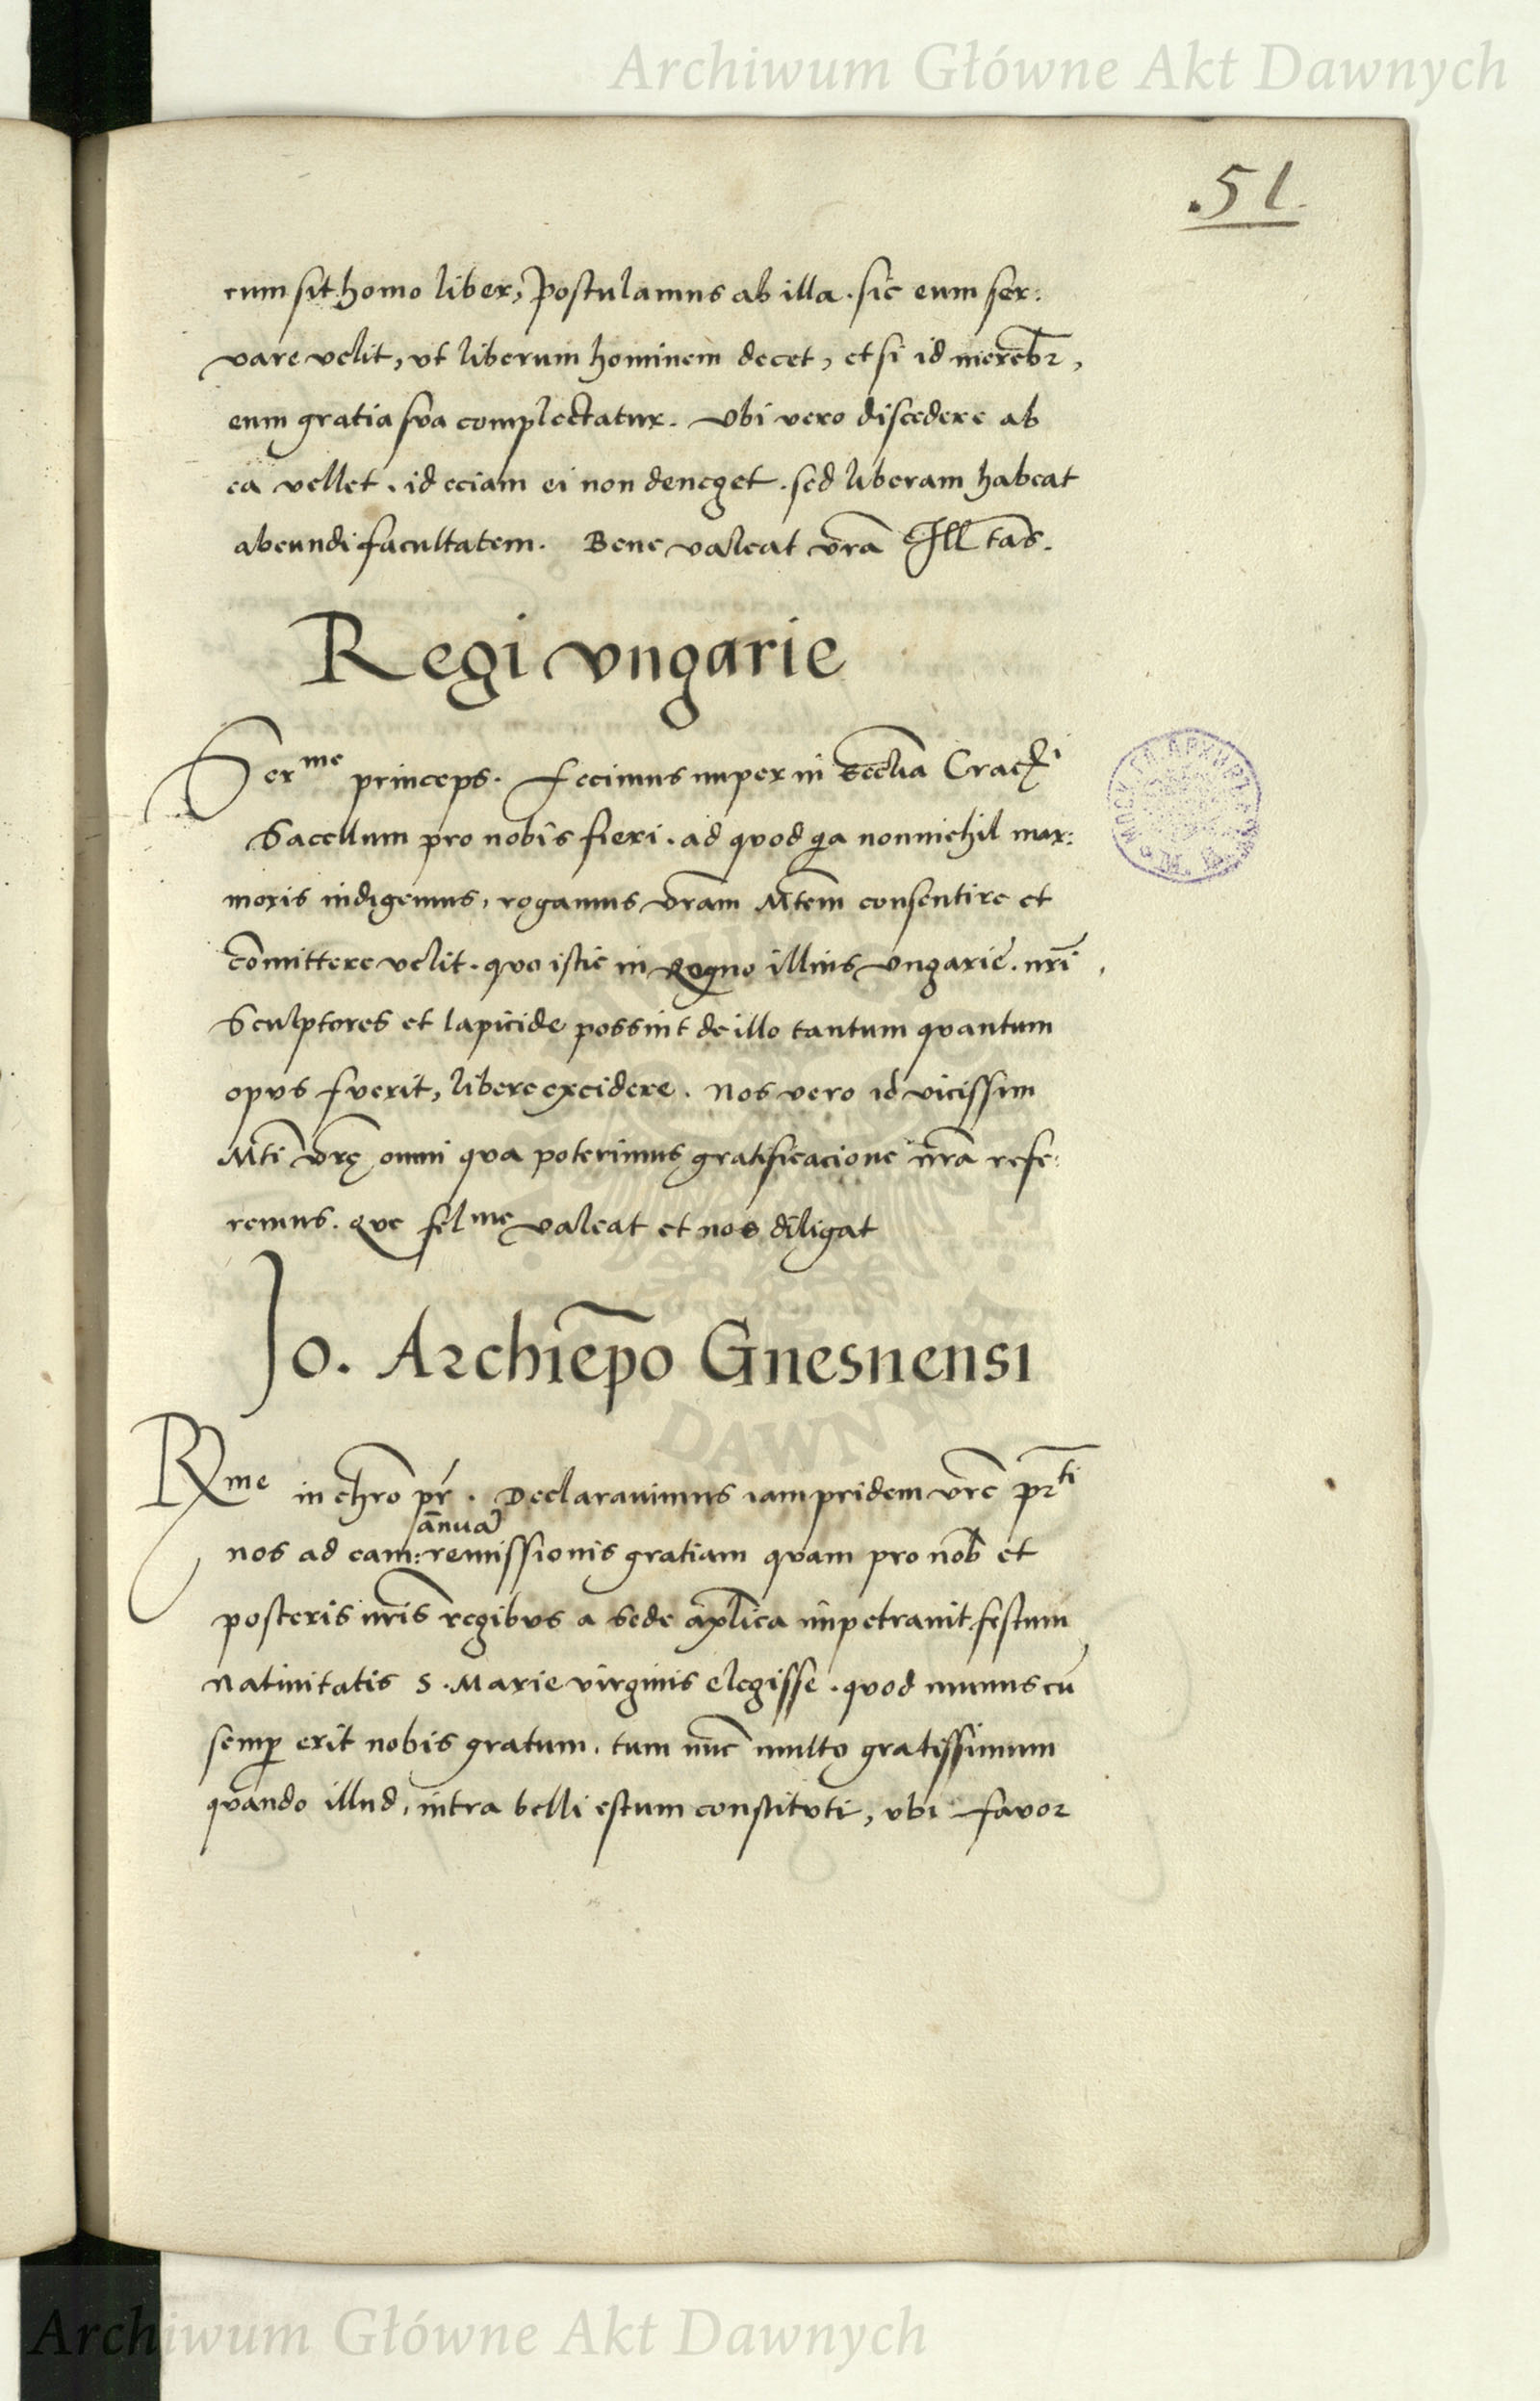 Archiwum Główne Akt Dawnych
.51.
cum sit homo liber, postulamus ab illa . sic eum ser:
vare velit, vt liberum hominem decet, et si id mereb̄r,
eum gratia sua complectatur. Vbi vero discedere ab
ea vellet . id eciam ei non deneget . sed liberam habeat
abeundi facultatem. Bene valeat vr̄a Ill tās.
Regi vngarie
Serme princeps. Fecimus nuper in Eccl̄ia
Sacellum pro nobis fieri . ad quod qa nonnichil mar:
moris indigemus, rogamus vr̄am Mtēm consentire et
com̄ittere velit . quo istic in Regno illius Vngarie . nr̄i
Sculptores et lapicide possint de illo tantum quantum
opus fuerit, libere excidere . Nos vero id vicissim
Mt̄i vr̄ę omni qua poterimus gratificacione nr̄a refe:
remus. Que felme valeat et nos diligat
Jo. Archiep̄o Gnesnensi
Rme in chr̄o pr̄ . Declaravimus iam pridem vr̄e pr̄ti
an̄ua
nos ad eam: remissionis gratiam quam pro nob̄ et
posteris nr̄is regibus a sede ap̄lica impetravit festum
Nativitatis S. Marie virginis elegisse . quod munus cū
semp erit nobis gratum . tum nūc multo gratissimum
quando illud, intra belli estum constituti, vbi favor
DAWNYCH
Archiwum Główne Akt Dawnych